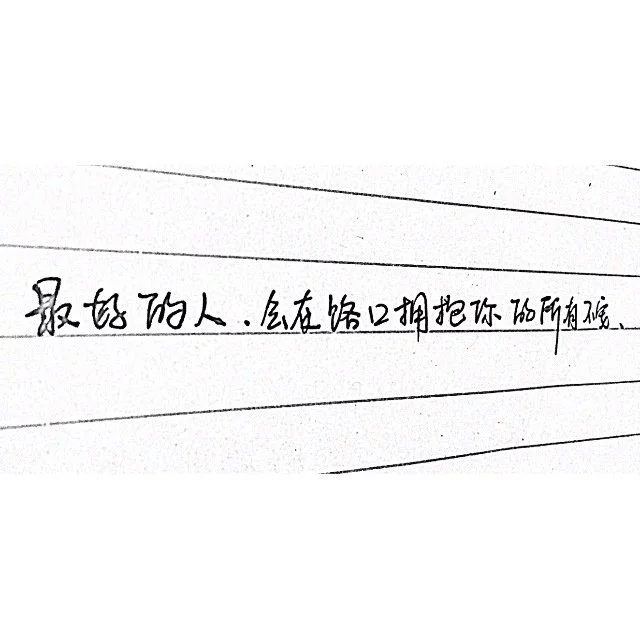 最好的人.会在路口拥抱你的所有不安、